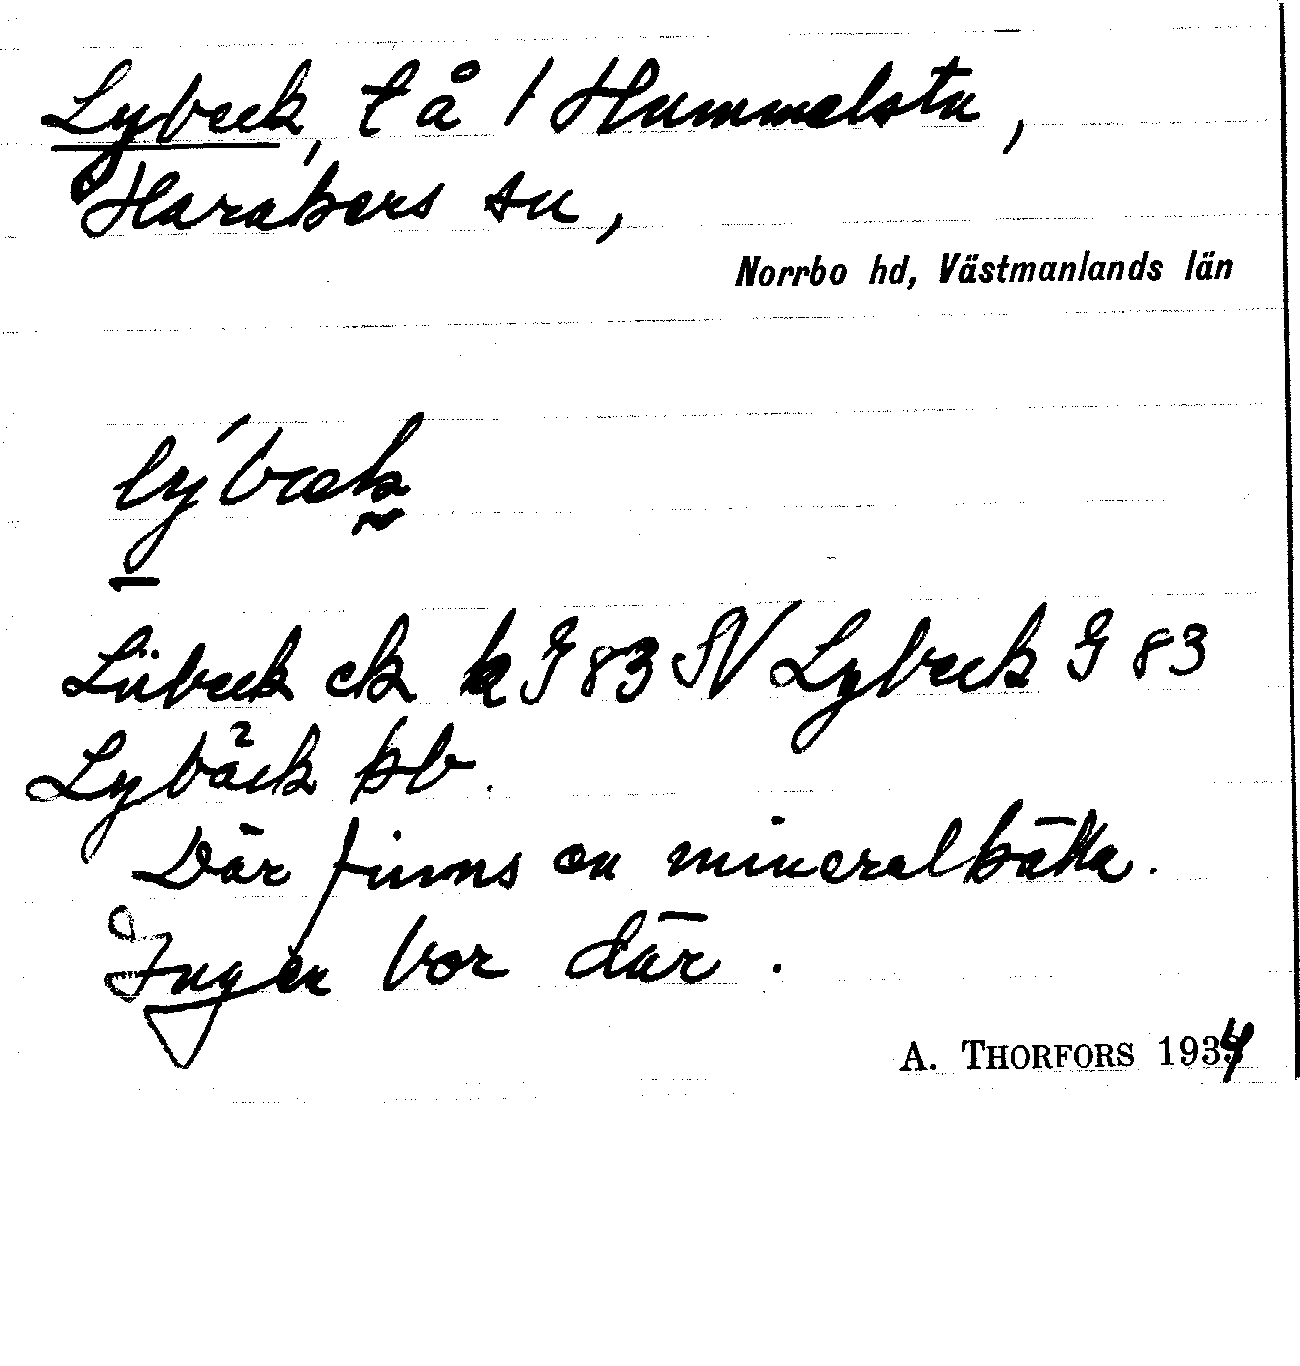 Lybeck, t å 1 Hummelsta,
Harakers sn,
Norrbo hd, Västmanlands län
lýbæk
Lübeck ek k G 83 SV Lybeck G 83
Lybäck kb.
Där finns en mineralkälla.
Ingen bor där.
A. THORFORS 1934